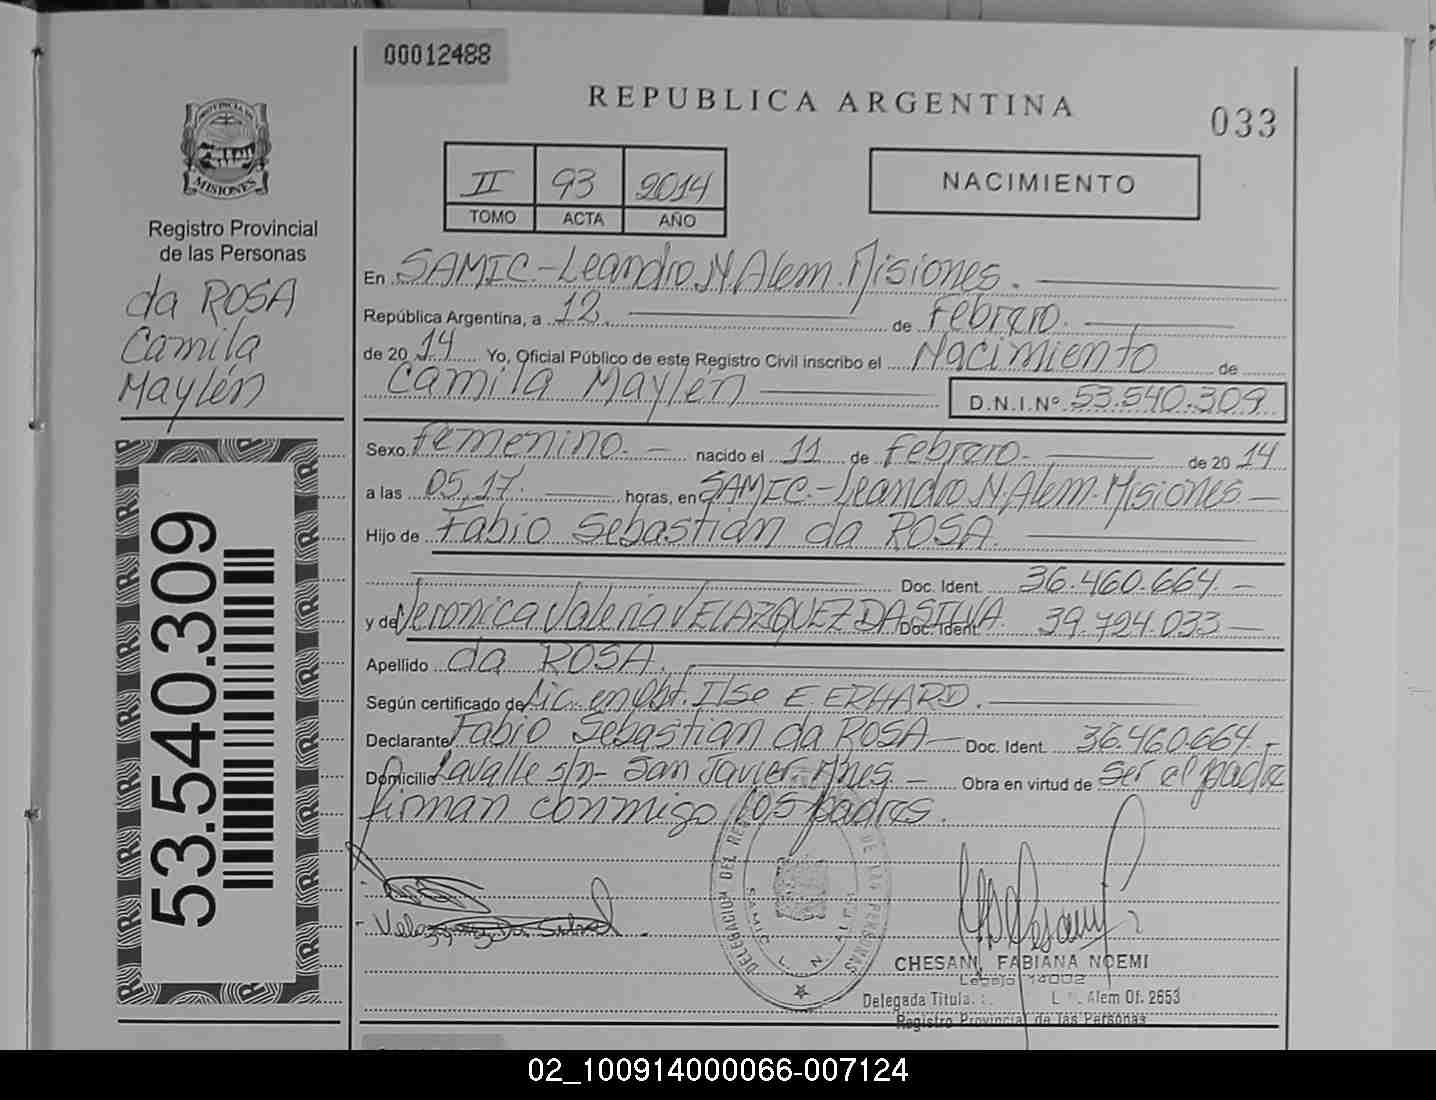 00012488
REPUBLICA ARGENTINA
033
PROVINCIA DE
MISIONES
Registro Provincial
de las Personas
da ROSA
Camila
Maylén
53.540.309
II 93 2014
TOMO ACTA AÑO
NACIMIENTO
En SAMIC-Leandro.N.Alem.Misiones.
República Argentina, a 12. de Febrero.
de 20 14 Yo, Oficial Público de este Registro Civil inscribo el Nacimiento de
Camila Maylén
D.N.I.Nº 53.540.309
Sexo Femenino. nacido el 11 de Febrero. de 20 14
a las 05,17. horas, en SAMIC.-Leandro.N.Alem.Misiones
Hijo de Fabio Sebastian da ROSA.
Doc. Ident. 36.460.664.
y de Veronica Valeria VELAZQUEZ DA SILVA Doc. Ident. 39.724.033
Apellido da ROSA.
Según certificado de Lic. en Obt. Ilse E. ERHARD.
Declarante Fabio Sebastian da ROSA Doc. Ident. 36.460.664.
Domicilio Lavalle s/n- San Javier Mnes. Obra en virtud de ser el padre
firman conmigo los padres.
DELEGACION DEL REG DE LAS PERSONAS
SAMIC L. N. ALEM
CHESANI, FABIANA NOEMI
Legajo 14002
Delegada Titular L. N. Alem Of. 2653
Registro Provincial de las Personas
02_100914000066-007124